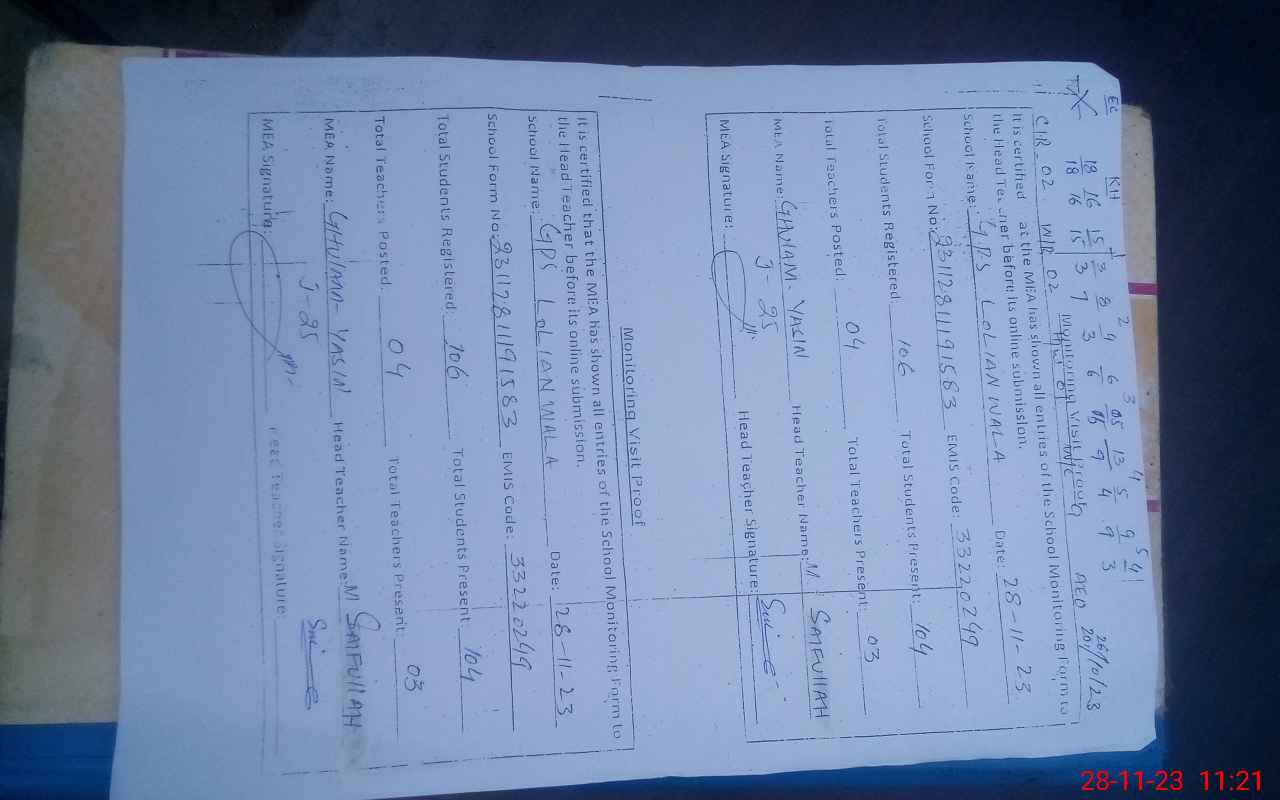 EC KH 1 2 3 4 5
18 16 15 3 8 4 6 05 13 5 9 4
18 16 15 3 7 3 6 06 9 4 9 3
CIR-02 WIR 02 AEO 26/10/23
Monitoring Visit Proof
It is certified at the MEA has shown all entries of the School Monitoring Form to
the Head Teacher before its online submission.
School Name: GPS LOLIAN WALA Date: 28-11-23
School Form No: 23112811191583 EMIS Code: 33220249
Total Students Registered: 106 Total Students Present: 104
Total Teachers Posted: 04 Total Teachers Present: 03
MEA Name: GHULAM-YASIN Head Teacher Name: M. SAIFULLAH
J-25
MEA Signature: Head Teacher Signature:
Monitoring Visit Proof
It is certified that the MEA has shown all entries of the School Monitoring Form to
the Head Teacher before its online submission.
School Name: GPS LOLIANWALA Date: 28-11-23
School Form No: 23112811191583 EMIS Code: 33220249
Total Students Registered: 106 Total Students Present: 104
Total Teachers Posted: 04 Total Teachers Present: 03
MEA Name: GHULAM-YASIN Head Teacher Name: M SAIFULLAH
J-25
MEA Signature: Head Teacher Signature:
28-11-23 11:21